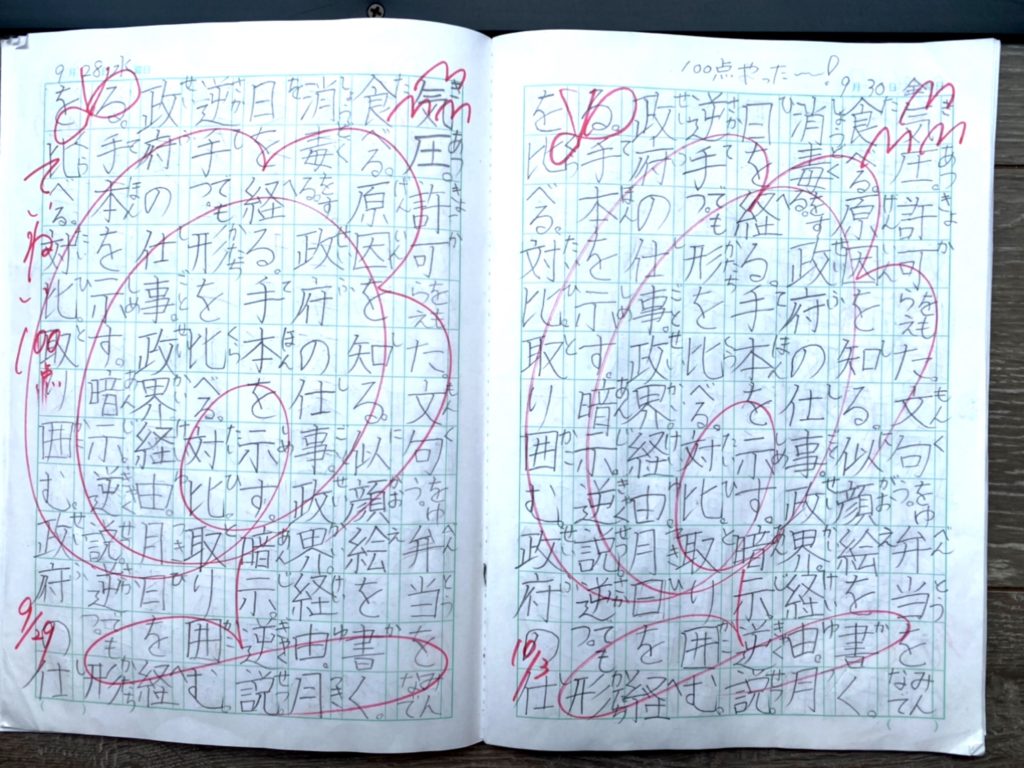 9月28日水曜日
気圧。許可をもらえた。文句をゆう。弁当をみんなで
食べる。原因を知る。似顔絵を書く。
消毒をする。政府の仕事。政界。経由。月
日を経る。手本を示す。暗示。逆説
逆手っても形を比べる。対比。取り囲む。
政府の仕事。政界。経由。月日を経
る。手本を示す。暗示。逆説。逆っても形
を比べる。対比。取り囲む。政府の仕
ていねい
100点
9/29
100点やった〜!
9月30日金
気圧。許可をもらえた。文句をゆう。弁当をみんなで
食べる。原因を知る。似顔絵を書く。
消毒をする。政府の仕事。政界。経由。月
日を経る。手本を示す。暗示。逆説
逆手っても形を比べる。対比。取り囲む。
政府の仕事。政界。経由。月日を経
る。手本を示す。暗示。逆説。逆っても形
を比べる。対比。取り囲む。政府の仕
10/3